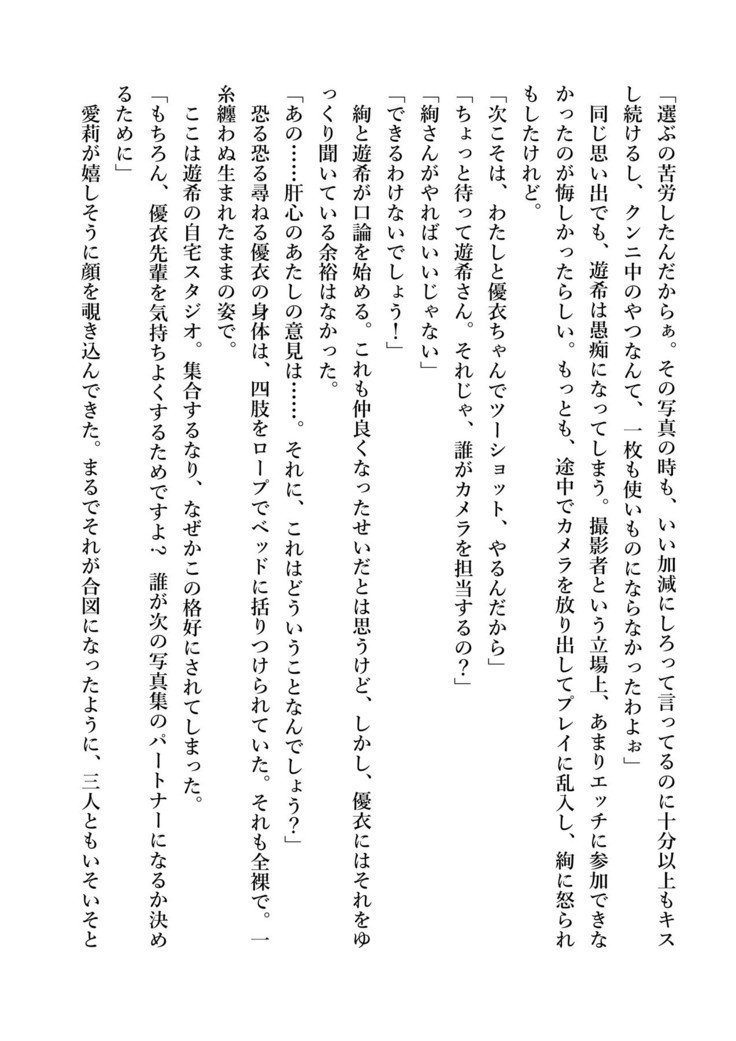 「選ぶの苦労したんだからぁ。その写真の時も、いい加減にしろって言ってるのに十分以上もキス
し続けるし、クンニ中のやつなんて、一枚も使いものにならなかったわよぉ」
同じ思い出でも、遊希は愚痴になってしまう。撮影者という立場上、あまりエッチに参加できな
かったのが悔しかったらしい。もっとも、途中でカメラを放り出してプレイに乱入し、絢に怒られ
もしたけれど。
「次こそは、わたしと優衣ちゃんでツーショット、やるんだから」
「ちょっと待って遊希さん。それじゃ、誰がカメラを担当するの？」
「絢さんがやればいいじゃない」
「できるわけないでしょう！」
絢と遊希が口論を始める。これも仲良くなったせいだとは思うけど、しかし、優衣にはそれをゆ
っくり聞いている余裕はなかった。
「あの……肝心のあたしの意見は……。それに、これはどういうことなんでしょう？」
恐る恐る尋ねる優衣の身体は、四肢をロープでベッドに括りつけられていた。それも全裸で。一
糸纏わぬ生まれたままの姿で。
ここは遊希の自宅スタジオ。集合するなり、なぜかこの格好にされてしまった。
「もちろん、優衣先輩を気持ちよくするためですよ？　誰が次の写真集のパートナーになるか決め
るために」
愛莉が嬉しそうに顔を覗き込んできた。まるでそれが合図になったように、三人ともいそいそと